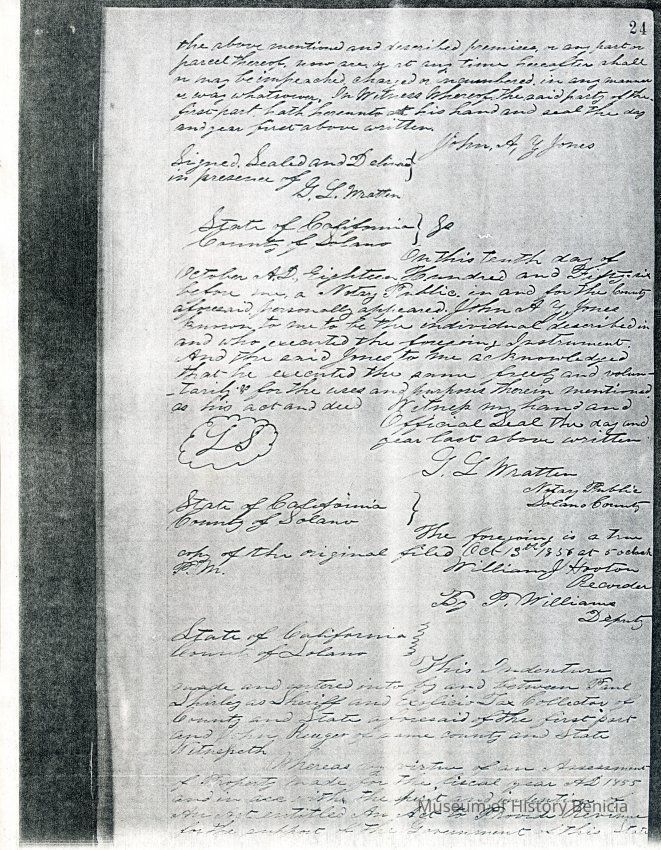 24
the above mentioned and described premises, or any part or
parcel thereof, now are, or at any time hereafter shall
or may be impeached, charged or incumbered, in any manner
or way whatsoever. In Witness Whereof, the said party of the
first part hath hereunto set his hand and seal the day
and year first above written.
John, A, Y Jones
Signed, Sealed and Delivered
in presence of
G. L. Wratten
State of California
County of Solano } Ss
On this tenth day of
October A.D. Eighteen Hundred and Fifty-six
before me, a Notary Public in and for the County
aforesaid, personally appeared John A Y Jones
known to me to be the individual described in
and who executed the foregoing Instrument
And the said Jones, to me acknowledged
that he executed the same freely and volun-
-tarily & for the uses and purposes therein mentioned
as his act and deed Witness my hand and
Official Seal the day and
year last above written
L S
G. L Wratten
Notary Public
Solano County
State of California
County of Solano
The foregoing is a true
copy of the original filed Oct 13th 1856 at 5 oclock
P.M.
William J Hooton
Recorder
By F. Williams
Deputy
State of California
County of Solano
This Indenture
made and entered into by and between Paul
Shirley as Sheriff and Exofficio Tax Collector of
County and State aforesaid of the first part
and John of same county and State
Witnesseth
Whereas by virtue of an Assessment
of Property made for the fiscal year AD 1855
and in with the provisions of
An Act entitled An Act to Provide Revenue
for the support of the Government of this State
Museum of History Benicia